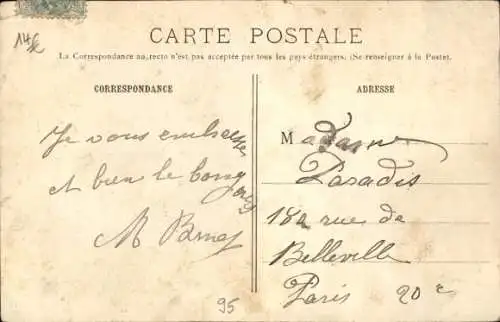 14€
CARTE POSTALE
La Correspondance au recto n'est pas acceptée par tous les pays étrangers. (Se renseigner à la Poste).
CORRESPONDANCE
Je vous embrasse
et bien le bonjour
M
ADRESSE
Madame
Paradis
180 rue de
Belleville
Paris 20e
95